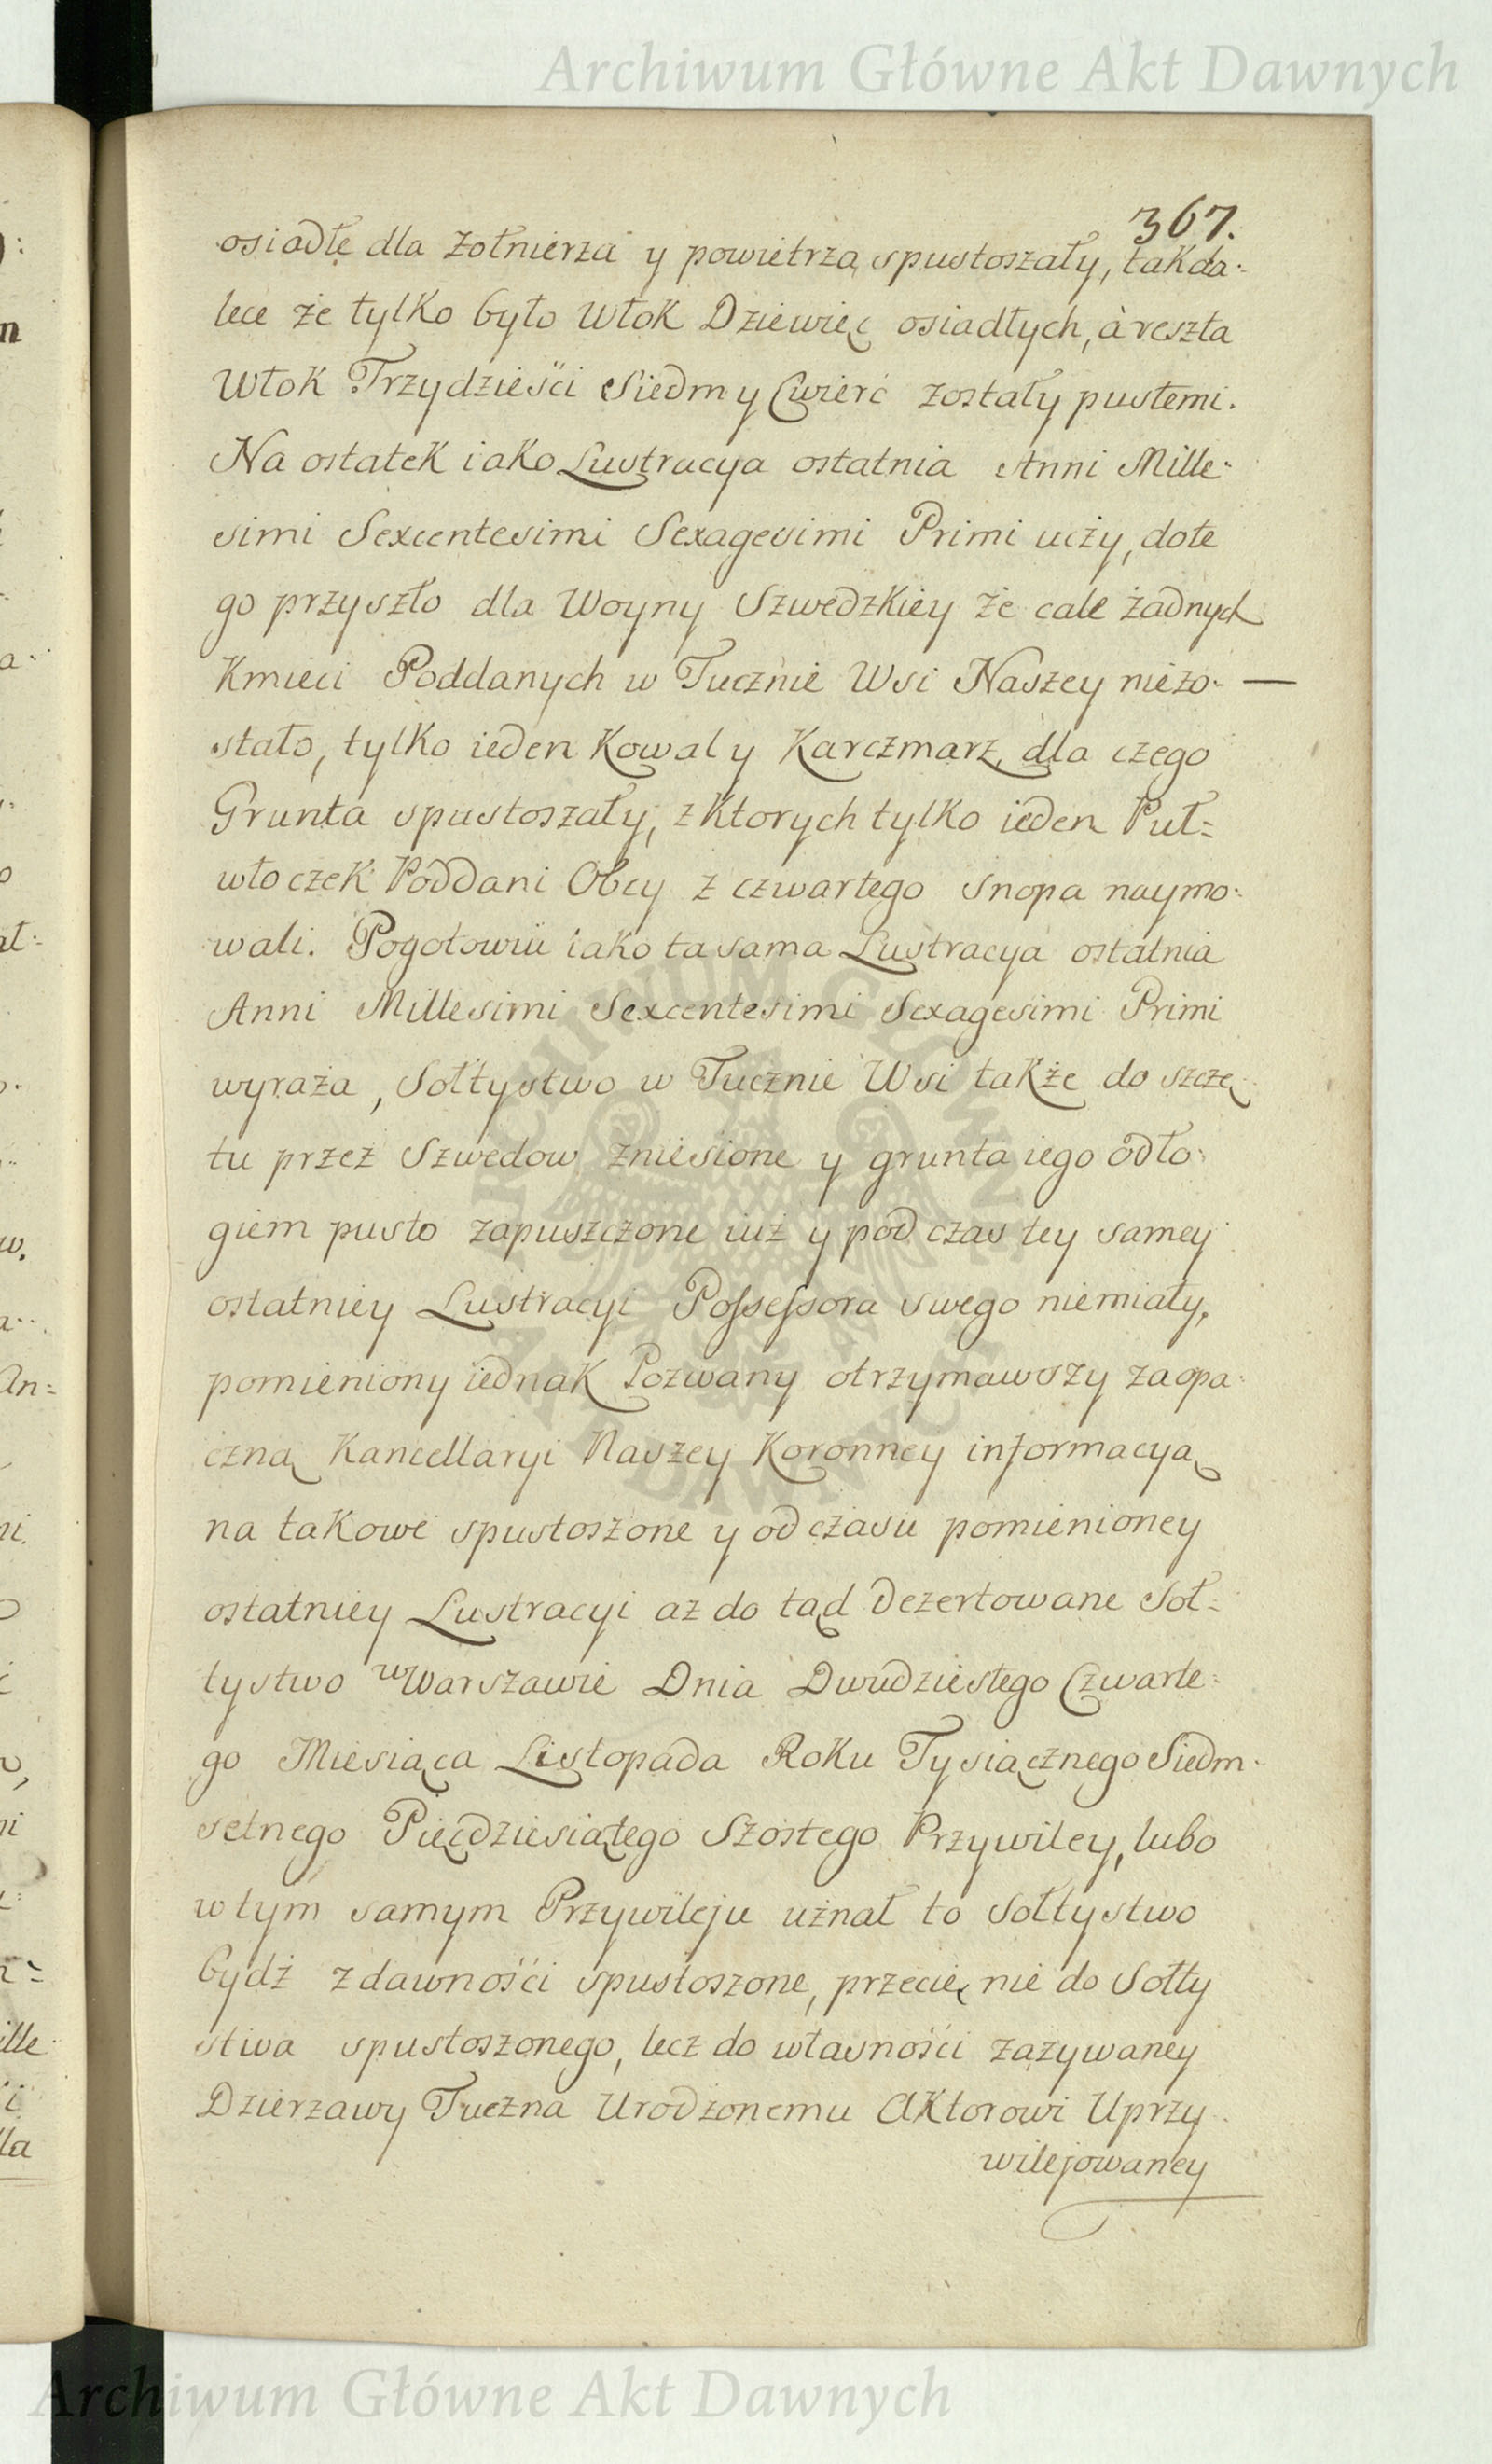 Archiwum Główne Akt Dawnych
367.
osiadłe dla Zołnierza y powietrza spustoszały, takda-
lece że tylko było Włok Dziewięc osiadłych, à reszta
Włok Trzydzieści Siedm y Cwierć zostały pustemi.
Na ostatek iako Lustracya ostatnia Anni Mille-
simi Sexcentesimi Sexagesimi Primi uczy, dote
go przyszło dla Woyny Szwedzkiey że cale żadnych
Kmieci Poddanych w Tucznie Wsi Naszey niezo- —
stało, tylko ieden Kowal y Karczmarz, dla czego
Grunta spustoszały, z Ktorych tylko ieden Puł=
włoczek Poddani Obcy z czwartego snopa naymo-
wali. Pogotowiu iako ta sama Lustracya ostatnia
Anni Millesimi Sexcentesimi Sexagesimi Primi
wyraża, Sołtystwo w Tucznie Wsi także do szczę-
tu przez Szwedow zniesione y grunta iego odło-
giem pusto zapuszczone iuż y pod czas tey samey
ostatniey Lustracyi Possessora swego niemiały,
pomieniony iednak Pozwany otrzymawszy zaopa-
czną Kancellaryi Naszey Koronney informacyą
na takowe spustoszone y od czasu pomienioney
ostatniey Lustracyi aż do tąd Dezertowane Soł-
tystwo w Warszawie Dnia Dwudziestego Czwarte-
go Miesiąca Listopada Roku Tysiącznego Siedm-
setnego Pięćdziesiątego Szostego Przywiley, lubo
w tym samym Przywileju uznał to Sołtystwo
bydź z dawności spustoszone, przecię nie do Sołty
stwa spustoszonego, lecz do własności zażywaney
Dzierzawy Tuczna Urodzonemu Aktorowi Uprzy-
wilejowaney
Archiwum Główne Akt Dawnych